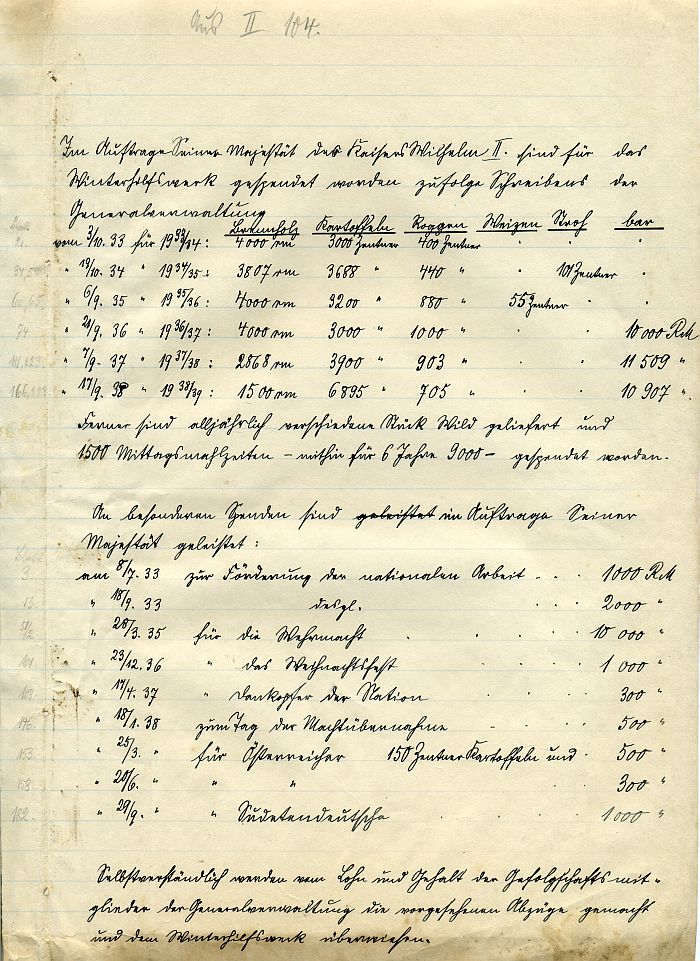 Aus II 104.
Im Auftrage Seiner Majestät des Kaisers Wilhelm II. sind für das
Winterhilfswerk gespendet worden zufolge Schreibens der
Generalverwaltung
Brennholz Kartoffeln Roggen Weizen Stroh bar
vom 3/10. 33 für 1933/34: 4000 rm 3000 Zentner 400 Zentner . . .
" 19/10. 34 " 1934/35: 3807 rm 3688 " 440 " . 101 Zentner .
" 6/9. 35 " 1935/36: 4000 rm 3200 " 880 " 55 Zentner . .
74 " 21/9. 36 " 1936/37: 4000 rm 3000 " 1000 " . . 10 000 RM
" 7/9. 37 " 1937/38: 2868 rm 3900 " 903 " . . 11 509 "
" 17/9. 38 " 1938/39: 1500 rm 6895 " 705 " . . 10 907 ".
Ferner sind alljährlich verschiedene Stück Wild geliefert und
1500 Mittagsmahlzeiten – mithin für 6 Jahre 9000 – gespendet worden.
An besonderen Spenden sind geleistet im Auftrage Seiner
Majestät geleistet:
3. am 8/7. 33 zur Förderung der nationalen Arbeit . . . 1000 RM
13. " 18/9. 33 desgl. . . 2000 "
" 28/3. 35 für die Wehrmacht . . . . 10 000 "
101 " 23/12. 36 " das Weihnachtsfest . . . 1 000 "
" 17/4. 37 " Dankopfer der Nation . . . 300 "
146. " 18/1. 38 zum Tag der Machtübernahme . . . 500 "
153. " 25/3. " für Österreicher 150 Zentner Kartoffeln und . 500 "
158. " 20/6. " " " 300 "
182. " 29/9. " " Sudetendeutsche . . . . 1000 "
Selbstverständlich werden vom Lohn und Gehalt der Gefolgschaftsmit-
glieder der Generalverwaltung die vorgesehenen Abzüge gemacht
und dem Winterhilfswerk überwiesen.